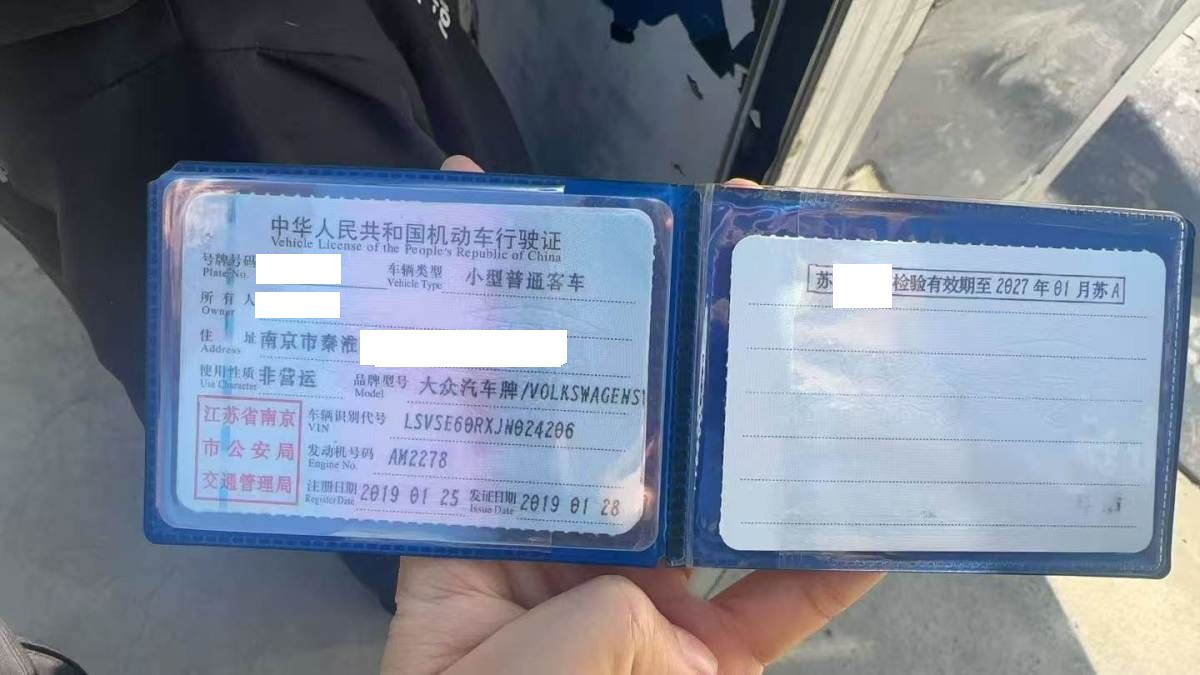 中华人民共和国机动车行驶证
Vehicle License of the People's Republic of China
号牌号码
Plate No.
车辆类型 小型普通客车
Vehicle Type
所有人
Owner
住址 南京市秦淮
Address
使用性质 非营运
Use Character
品牌型号 大众汽车牌/VOLKSWAGENSV
Model
车辆识别代号 LSVSE60RXJN024206
VIN
发动机号码 AM2278
Engine No.
注册日期 2019 01 25
Register Date
发证日期 2019 01 28
Issue Date
江苏省南京
市公安局
交通管理局
苏 检验有效期至 2027 年 01 月苏 A